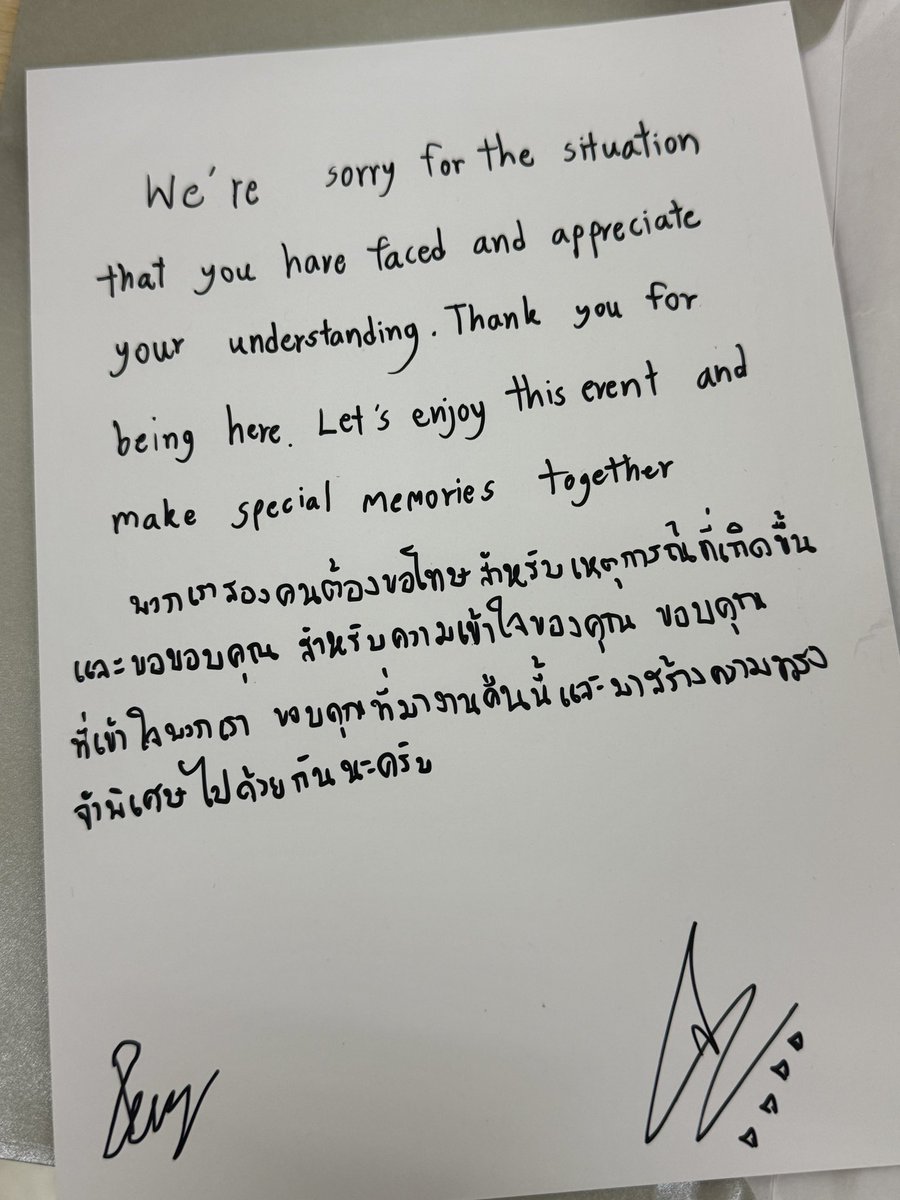 We're sorry for the situation
that you have faced and appreciate
your understanding. Thank you for
being here. Let's enjoy this event and
make special memories together
พวกเราสองคนต้องขอโทษ สำหรับ เหตุการณ์ ที่เกิดขึ้น
และขอขอบคุณ สำหรับความเข้าใจของคุณ ขอบคุณ
ที่เข้าใจพวกเรา ขอบคุณที่มางานคืนนี้ และมาสร้างความทรง
จำพิเศษไปด้วยกันนะครับ